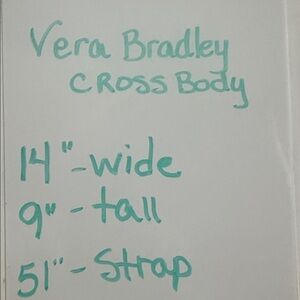 Vera Bradley
CROSS Body
14"-wide
9"-tall
51"-Strap